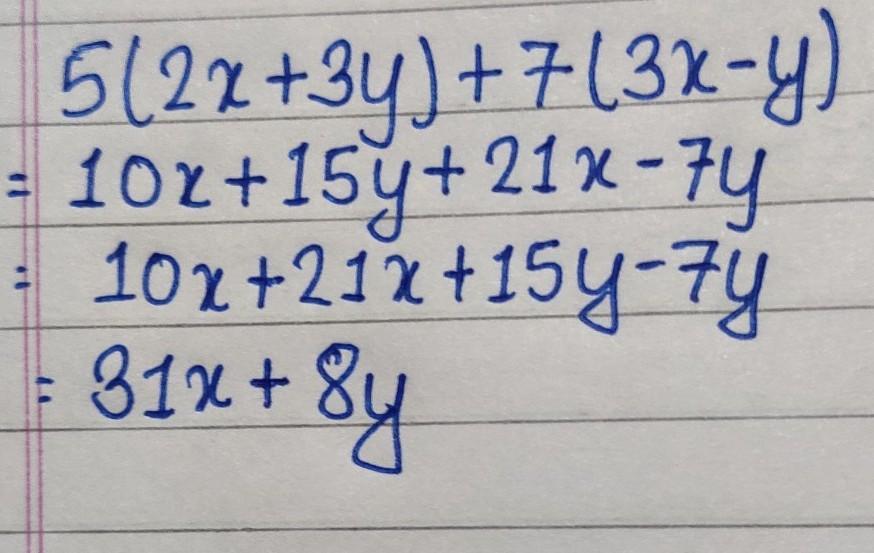 5(2x+3y)+7(3x-y)
= 10x+15y+21x-7y
= 10x+21x+15y-7y
= 31x+8y